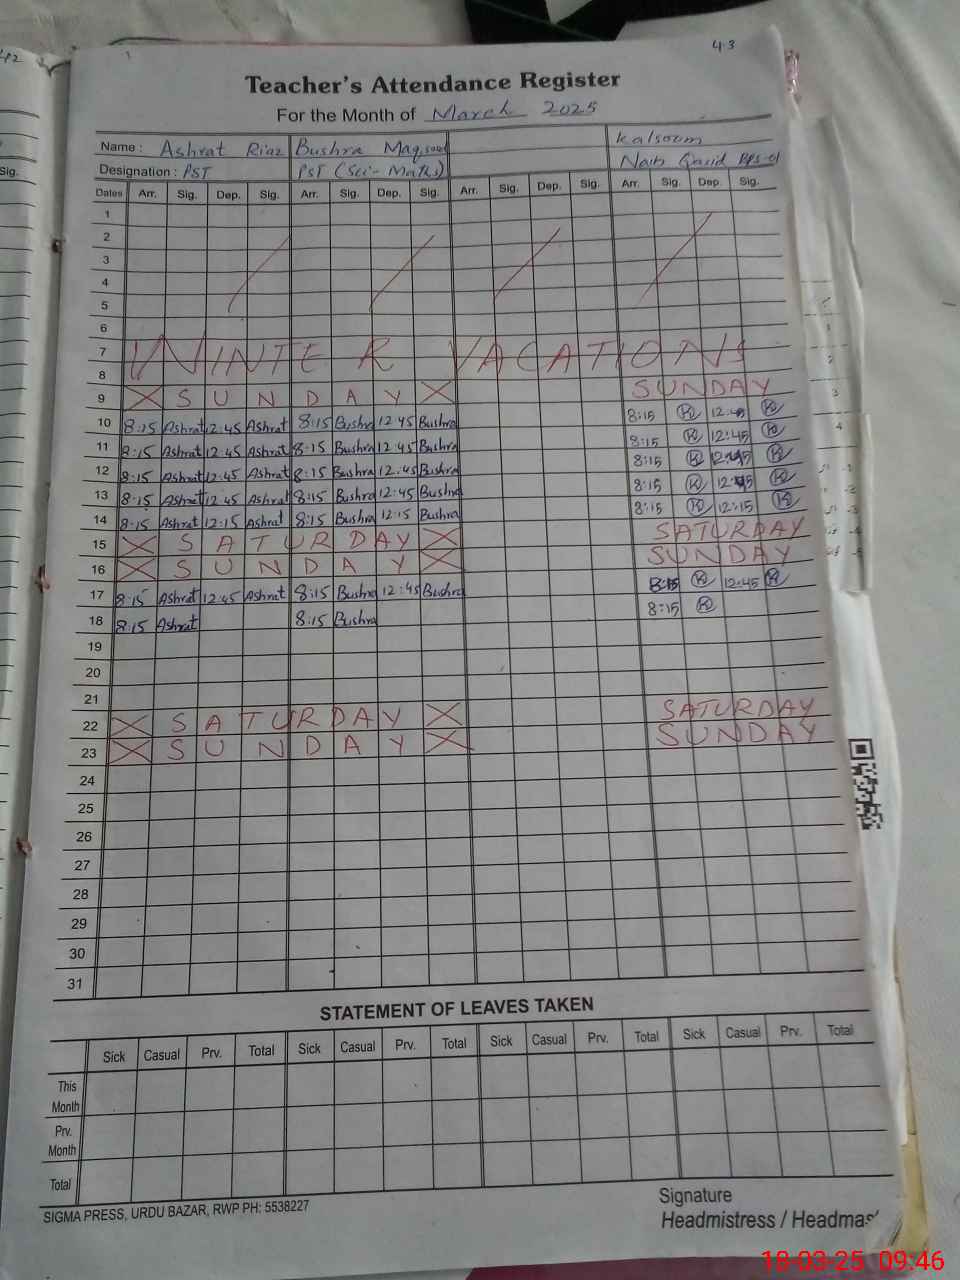 43
Teacher's Attendance Register
For the Month of March 2025
Name : Ashrat Riaz Bushra Maqsood Kalsoom
Designation : PST PST (Sci-Maths) Naib Qasid BPS-01
Dates Arr. Sig. Dep. Sig. Arr. Sig. Dep. Sig. Arr. Sig. Dep. Sig. Arr. Sig. Dep. Sig.
1
2
3
4
5
6
7 WINTER VACATIONS
8
9 X SUNDAY X SUNDAY
10 8:15 Ashrat 12:45 Ashrat 8:15 Bushra 12:45 Bushra 8:15 K 12:45 K
11 8:15 Ashrat 12:45 Ashrat 8:15 Bushra 12:45 Bushra 8:15 K 12:45 K
12 8:15 Ashrat 12:45 Ashrat 8:15 Bushra 12:45 Bushra 8:15 K 12:45 K
13 8:15 Ashrat 12:45 Ashrat 8:15 Bushra 12:45 Bushra 8:15 K 12:45 K
14 8:15 Ashrat 12:15 Ashrat 8:15 Bushra 12:15 Bushra 8:15 K 12:15 K
15 X SATURDAY X SATURDAY
16 X SUNDAY X SUNDAY
17 8:15 Ashrat 12:45 Ashrat 8:15 Bushra 12:45 Bushra 8:15 K 12:45 K
18 8:15 Ashrat 8:15 Bushra 8:15 K
19
20
21
22 X SATURDAY X SATURDAY
23 X SUNDAY X SUNDAY
24
25
26
27
28
29
30
31
STATEMENT OF LEAVES TAKEN
Sick Casual Prv. Total Sick Casual Prv. Total Sick Casual Prv. Total Sick Casual Prv. Total
This
Month
Prv.
Month
Total
SIGMA PRESS, URDU BAZAR, RWP PH: 5538227
Signature
Headmistress / Headmas
18-03-25 09:46